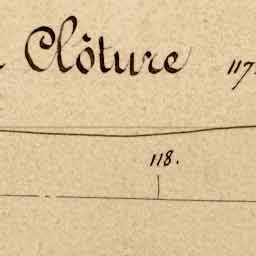 Clôture 117.
118.